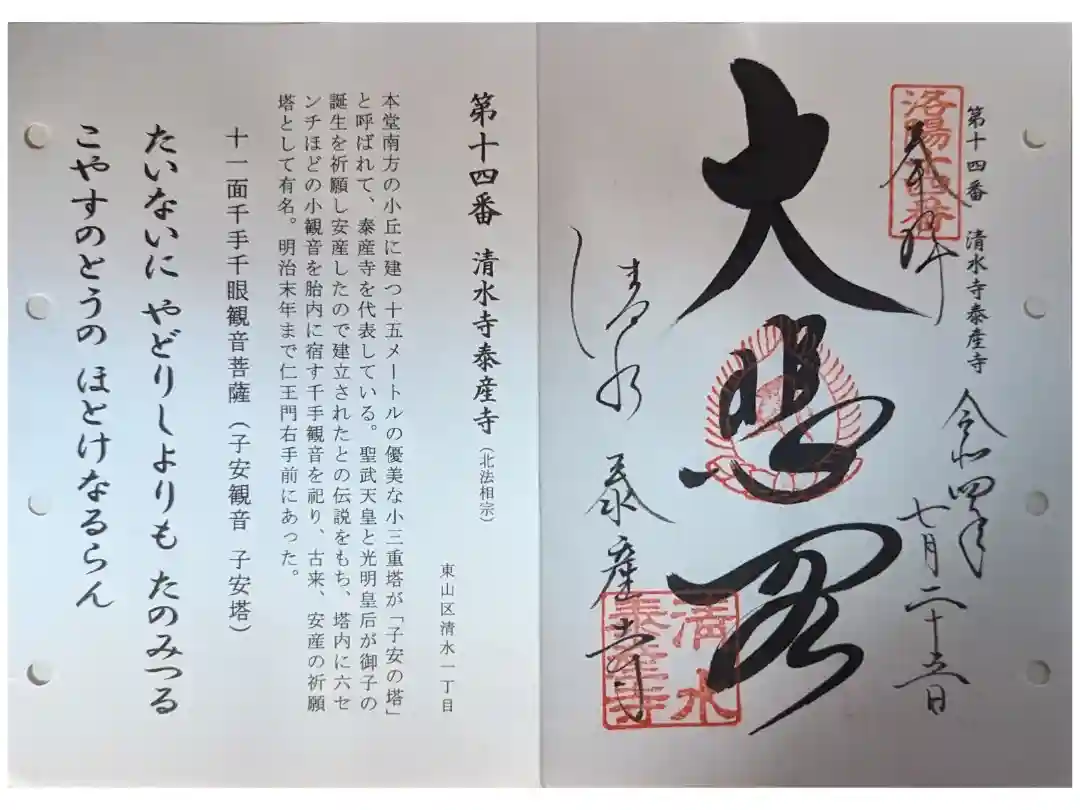 第十四番 清水寺泰産寺
令和四年
七月二十五日
洛陽十四番
奉拝
大悲閣
清水 泰産寺
清水
泰産寺
東山区清水一丁目
第十四番 清水寺泰産寺(北法相宗)
本堂南方の小丘に建つ十五メートルの優美な小三重塔が「子安の塔」
と呼ばれて、泰産寺を代表している。聖武天皇と光明皇后が御子の
誕生を祈願し安産したので建立されたとの伝説をもち、塔内に六セ
ンチほどの小観音を胎内に宿す千手観音を祀り、古来、安産の祈願
塔として有名。明治末年まで仁王門右手前にあった。
十一面千手千眼観音菩薩(子安観音 子安塔)
たいないに やどりしよりも たのみつる
こやすのとうの ほとけなるらん